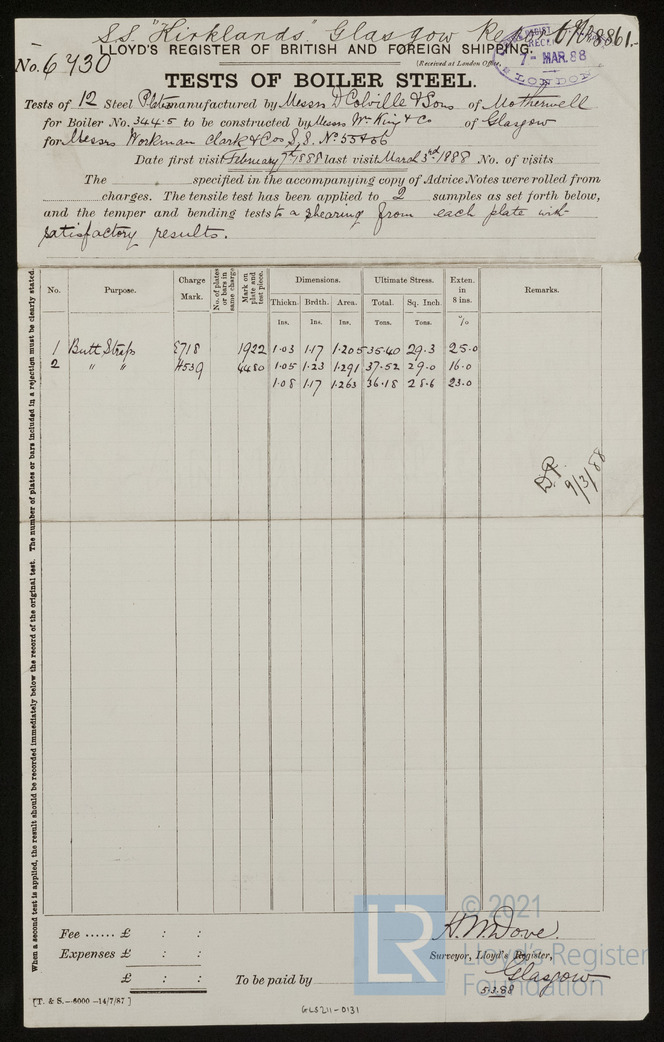 S.S. "Kirklands" Glasgow Report No 8861.
LLOYD'S REGISTER OF BRITISH AND FOREIGN SHIPPING.
No. 6430
(Received at London Office,
7- MAR. 88
LONDON
TESTS OF BOILER STEEL.
Tests of 12 Steel Plates manufactured by Messrs D Colville & Sons of Motherwell
for Boiler No. 344.5 to be constructed by Messrs Wm King & Co of Glasgow
for Messrs Workman Clark & Cos S.S. No 55 & 56
Date first visit February 7th 1888 last visit March 3rd 1888 No. of visits
The specified in the accompanying copy of Advice Notes were rolled from
charges. The tensile test has been applied to 2 samples as set forth below,
and the temper and bending tests to a shearing from each plate with
satisfactory results.
When a second test is applied, the result should be recorded immediately below the record of the original test. The number of plates or bars included in a rejection must be clearly stated.
No. Purpose. Charge Mark. No. of plates or bars in same charge Mark on plate and test piece. Dimensions. Ultimate Stress. Exten. in 8 ins. Remarks.
Thickn. Brdth. Area. Total. Sq. Inch.
Ins. Ins. Ins. Tons. Tons. %
1 Butt Straps E718 1922 1.03 1.17 1.205 35.40 29.3 25.0
2 " " H539 4480 1.05 1.23 1.291 37.52 29.0 16.0
1.08 1.17 1.263 36.18 28.6 23.0
9/3/88
Fee ...... £ : :
Expenses £ : :
£ : :
To be paid by
H. W. Dove.
Surveyor, Lloyd's Register,
Glasgow
5.3.88
[T. & S.—6000—14/7/87]
GLS211-0131
LR
© 2021
Lloyd's Register
Foundation